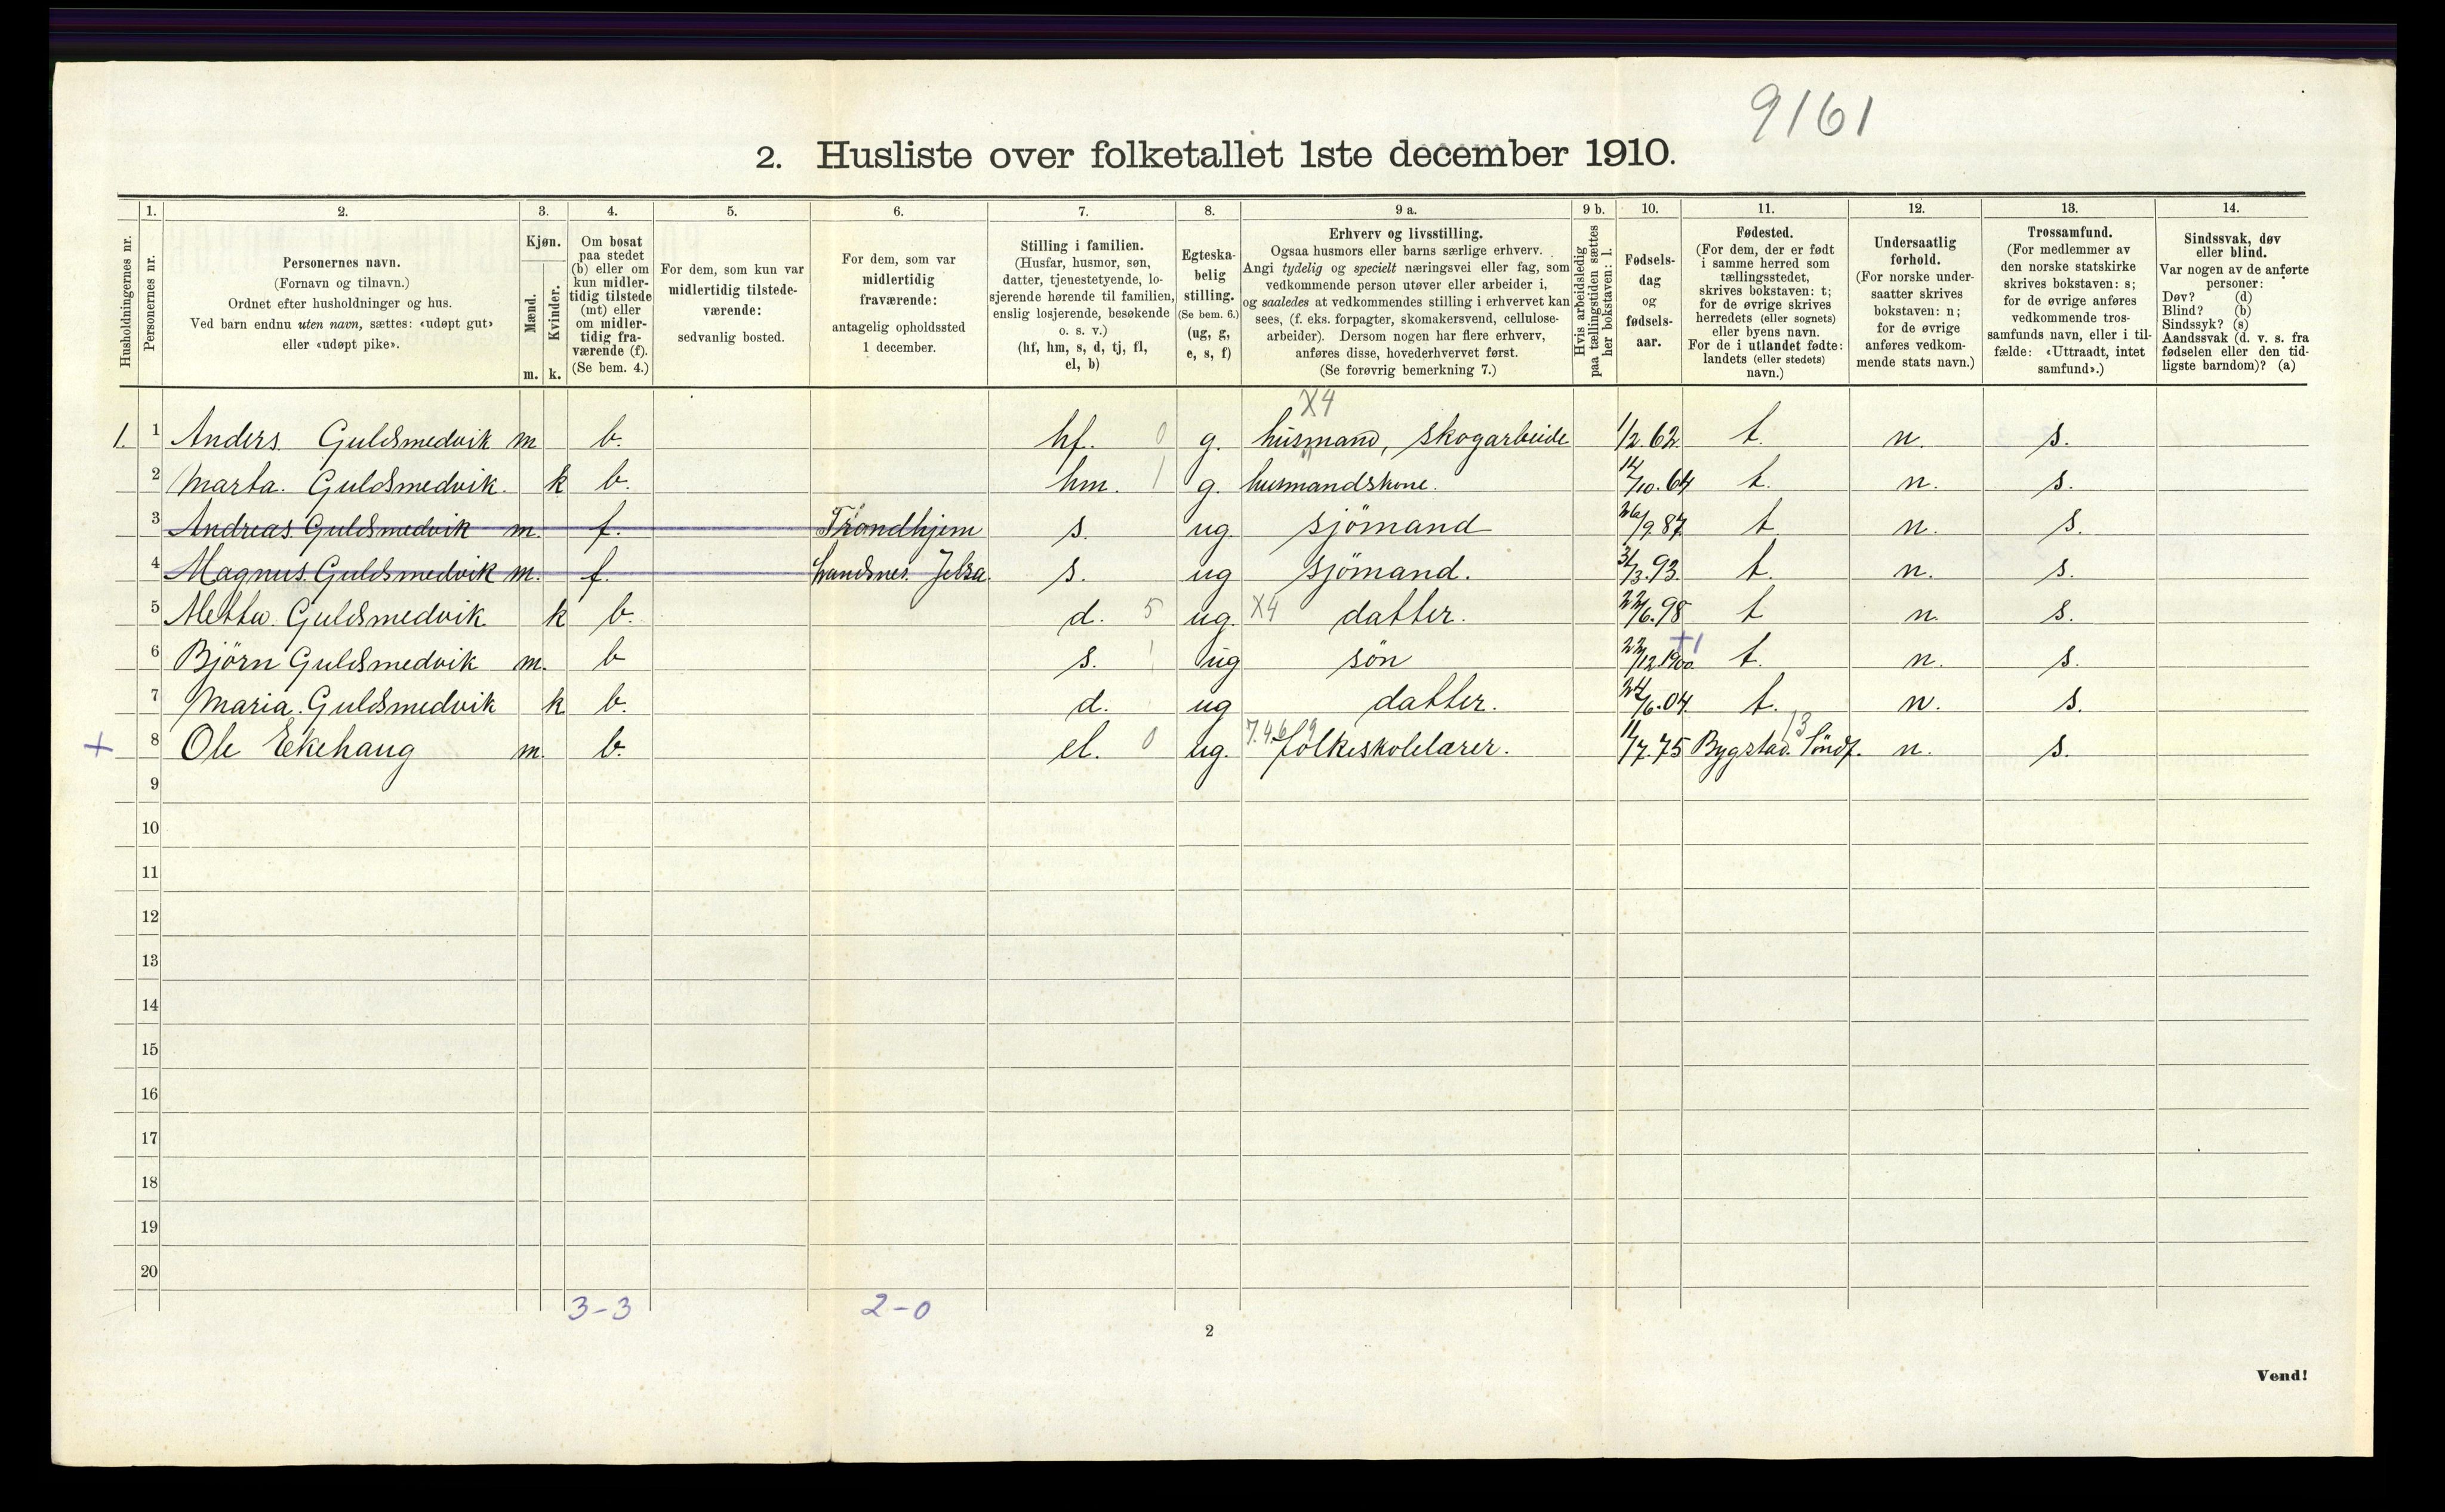 9161
2. Husliste over folketallet 1ste december 1910.
Husholdningernes nr.
1.
Personernes nr.
2.
Personernes navn.
(Fornavn og tilnavn.)
Ordnet efter husholdninger og hus.
Ved barn endnu uten navn, sættes: «udøpt gut»
eller «udøpt pike».
3.
Kjøn.
Mænd.
Kvinder.
m. k.
4.
Om bosat
paa stedet
(b) eller om
kun midler-
tidig tilstede
(mt) eller
om midler-
tidig fra-
værende (f).
(Se bem. 4.)
5.
For dem, som kun var
midlertidig tilstede-
værende:
sedvanlig bosted.
6.
For dem, som var
midlertidig
fraværende:
antagelig opholdssted
1 december.
7.
Stilling i familien.
(Husfar, husmor, søn,
datter, tjenestetyende, lo-
sjerende hørende til familien,
enslig losjerende, besøkende
o. s. v.)
(hf, hm, s, d, tj, fl,
el, b)
8.
Egteska-
belig
stilling.
(Se bem. 6.)
(ug, g,
e, s, f)
9 a.
Erhverv og livsstilling.
Ogsaa husmors eller barns særlige erhverv.
Angi tydelig og specielt næringsvei eller fag, som
vedkommende person utøver eller arbeider i,
og saaledes at vedkommendes stilling i erhvervet kan
sees, (f. eks. forpagter, skomakersvend, cellulose-
arbeider). Dersom nogen har flere erhverv,
anføres disse, hovederhvervet først.
(Se forøvrig bemerkning 7.)
9 b.
Hvis arbeidsledig
paa tællingstiden sættes
her bokstaven: l.
10.
Fødsels-
dag
og
fødsels-
aar.
11.
Fødested.
(For dem, der er født
i samme herred som
tællingsstedet,
skrives bokstaven: t;
for de øvrige skrives
herredets (eller sognets)
eller byens navn.
For de i utlandet fødte:
landets (eller stedets)
navn.)
12.
Undersaatlig
forhold.
(For norske under-
saatter skrives
bokstaven: n;
for de øvrige
anføres vedkom-
mende stats navn.)
13.
Trossamfund.
(For medlemmer av
den norske statskirke
skrives bokstaven: s;
for de øvrige anføres
vedkommende tros-
samfunds navn, eller i til-
fælde: «Uttraadt, intet
samfund».)
14.
Sindssvak, døv
eller blind.
Var nogen av de anførte
personer:
Døv? (d)
Blind? (b)
Sindssyk? (s)
Aandssvak (d. v. s. fra
fødselen eller den tid-
ligste barndom)? (a)
X4
1. 1 Anders Guldsmedvik m b. hf. 0 g. husmand, skogarbeide 1/2.62. t. n. s.
2 Marta. Guldsmedvik. k b. hm. 1 g. husmandskone. 14/10.64 t. n. s.
3 Andreas Guldsmedvik m. f. Trondhjem s. ug. sjömand 26/9 87. t n. s.
4 Magnus. Guldsmedvik m. f. Jelsa. s. ug sjömand. 31/3.93. t. n. s.
5 Guldsmedvik k b. d. 5 ug. X4 datter. 22/6.98 t n. s.
+1
6 Björn Guldsmedvik m. b s. 1 ug sön 22/12.1900. t. n. s.
7 Maria. Guldsmedvik k b. d. ug datter. 24/6.04. t. n. s.
7.4.6 9 13
+ 8 Ole Eikehaug m. b. el. 0 ug. folkeskolelærer. 11/7.75 Bygstad. Söndf. n. s.
9
10
11
12
13
14
15
16
17
18
19
20
3-3 2-0
2
Vend!